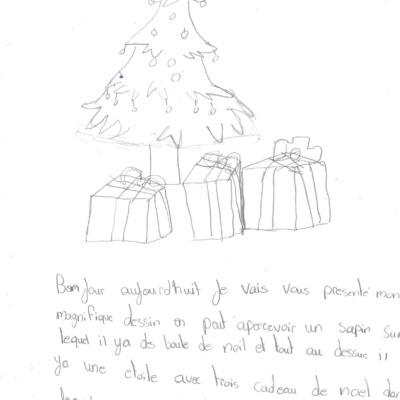 Bonjour aujourd'huit je vais vous presenté mon
magnifique dessin on peut apercevoir un sapin sur
lequel il ya des boule de noil et tout au dessus il
ya une etoile avec trois cadeau de noel dan